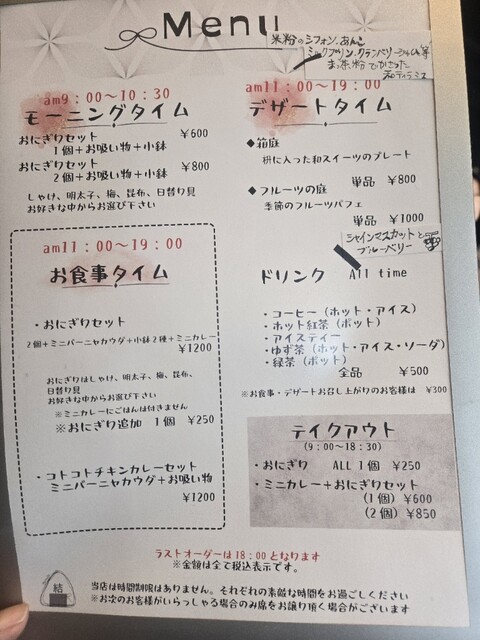 Menu
米粉のシフォン、あんこ
ミルクプリン、クランベリー
まっ茶粉でかざった
和ティラミス
am9:00〜10:30
モーニングタイム
おにぎりセット ¥600
1個+お吸い物+小鉢
おにぎりセット ¥800
2個+お吸い物+小鉢
しゃけ、明太子、梅、昆布、日替り具
お好きな中からお選び下さい
am11:00〜19:00
お食事タイム
・おにぎりセット
2個+ミニバーニャカウダ+小鉢2種+ミニカレー
¥1200
おにぎりはしゃけ、明太子、梅、昆布、
日替り具
お好きな中からお選び下さい
※ミニカレーにごはんは付きません
※おにぎり追加 1個 ¥250
・コトコトチキンカレーセット
ミニバーニャカウダ+お吸い物
¥1200
am11:00〜19:00
デザートタイム
◆箱庭
枡に入った和スイーツのプレート
単品 ¥800
◆フルーツの庭
季節のフルーツパフェ
単品 ¥1000
シャインマスカットと
ブルーベリー
ドリンク All time
・コーヒー(ホット・アイス)
・ホット紅茶(ポット)
・アイスティー
・ゆず茶(ホット・アイス・ソーダ)
・緑茶(ポット)
全品 ¥500
※お食事・デザートお召し上がりのお客様は ¥300
テイクアウト
(9:00〜18:30)
・おにぎり ALL 1個 ¥250
・ミニカレー+おにぎりセット
(1個) ¥600
(2個) ¥850
ラストオーダーは18:00となります
※金額は全て税込表示です。
結
当店は時間制限はありません。それぞれの素敵な時間をお過ごしください
※お次のお客様がいらっしゃる場合のみ席をお譲り頂く場合がございます